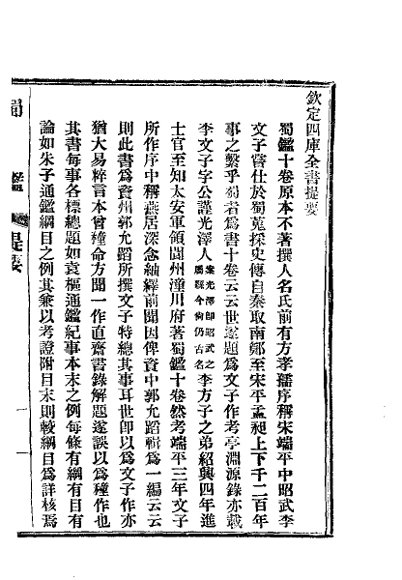 欽定四庫全書提要
蜀鑑十卷原本不著撰人名氏前有方孝孺序稱宋端平中昭武李
文子嘗仕於蜀蒐採史傳自秦取南鄭至宋平孟昶上下千二百年
事之繫乎蜀者爲書十卷云云世遂題爲文子作考亭淵源錄亦載
李文子字公謹光澤人案光澤卽昭武之屬縣今尚仍古名李方子之弟紹興四年進
士官至知太安軍領閬州潼川府著蜀鑑十卷然考端平三年文子
所作序中稱燕居深念紬繹前聞因俾資中郭允蹈輯爲一編云云
則此書爲資州郭允蹈所撰文子特總其事耳世卽以爲文子作亦
猶大易粹言本曾穜命方聞一作直齋書錄解題遂誤以爲穜作也
其書每事各標總題如袁樞通鑑紀事本末之例每條有綱有目有
論如朱子通鑑綱目之例其兼以考證附目末則較綱目爲詳核焉
蜀鑑 提要
一